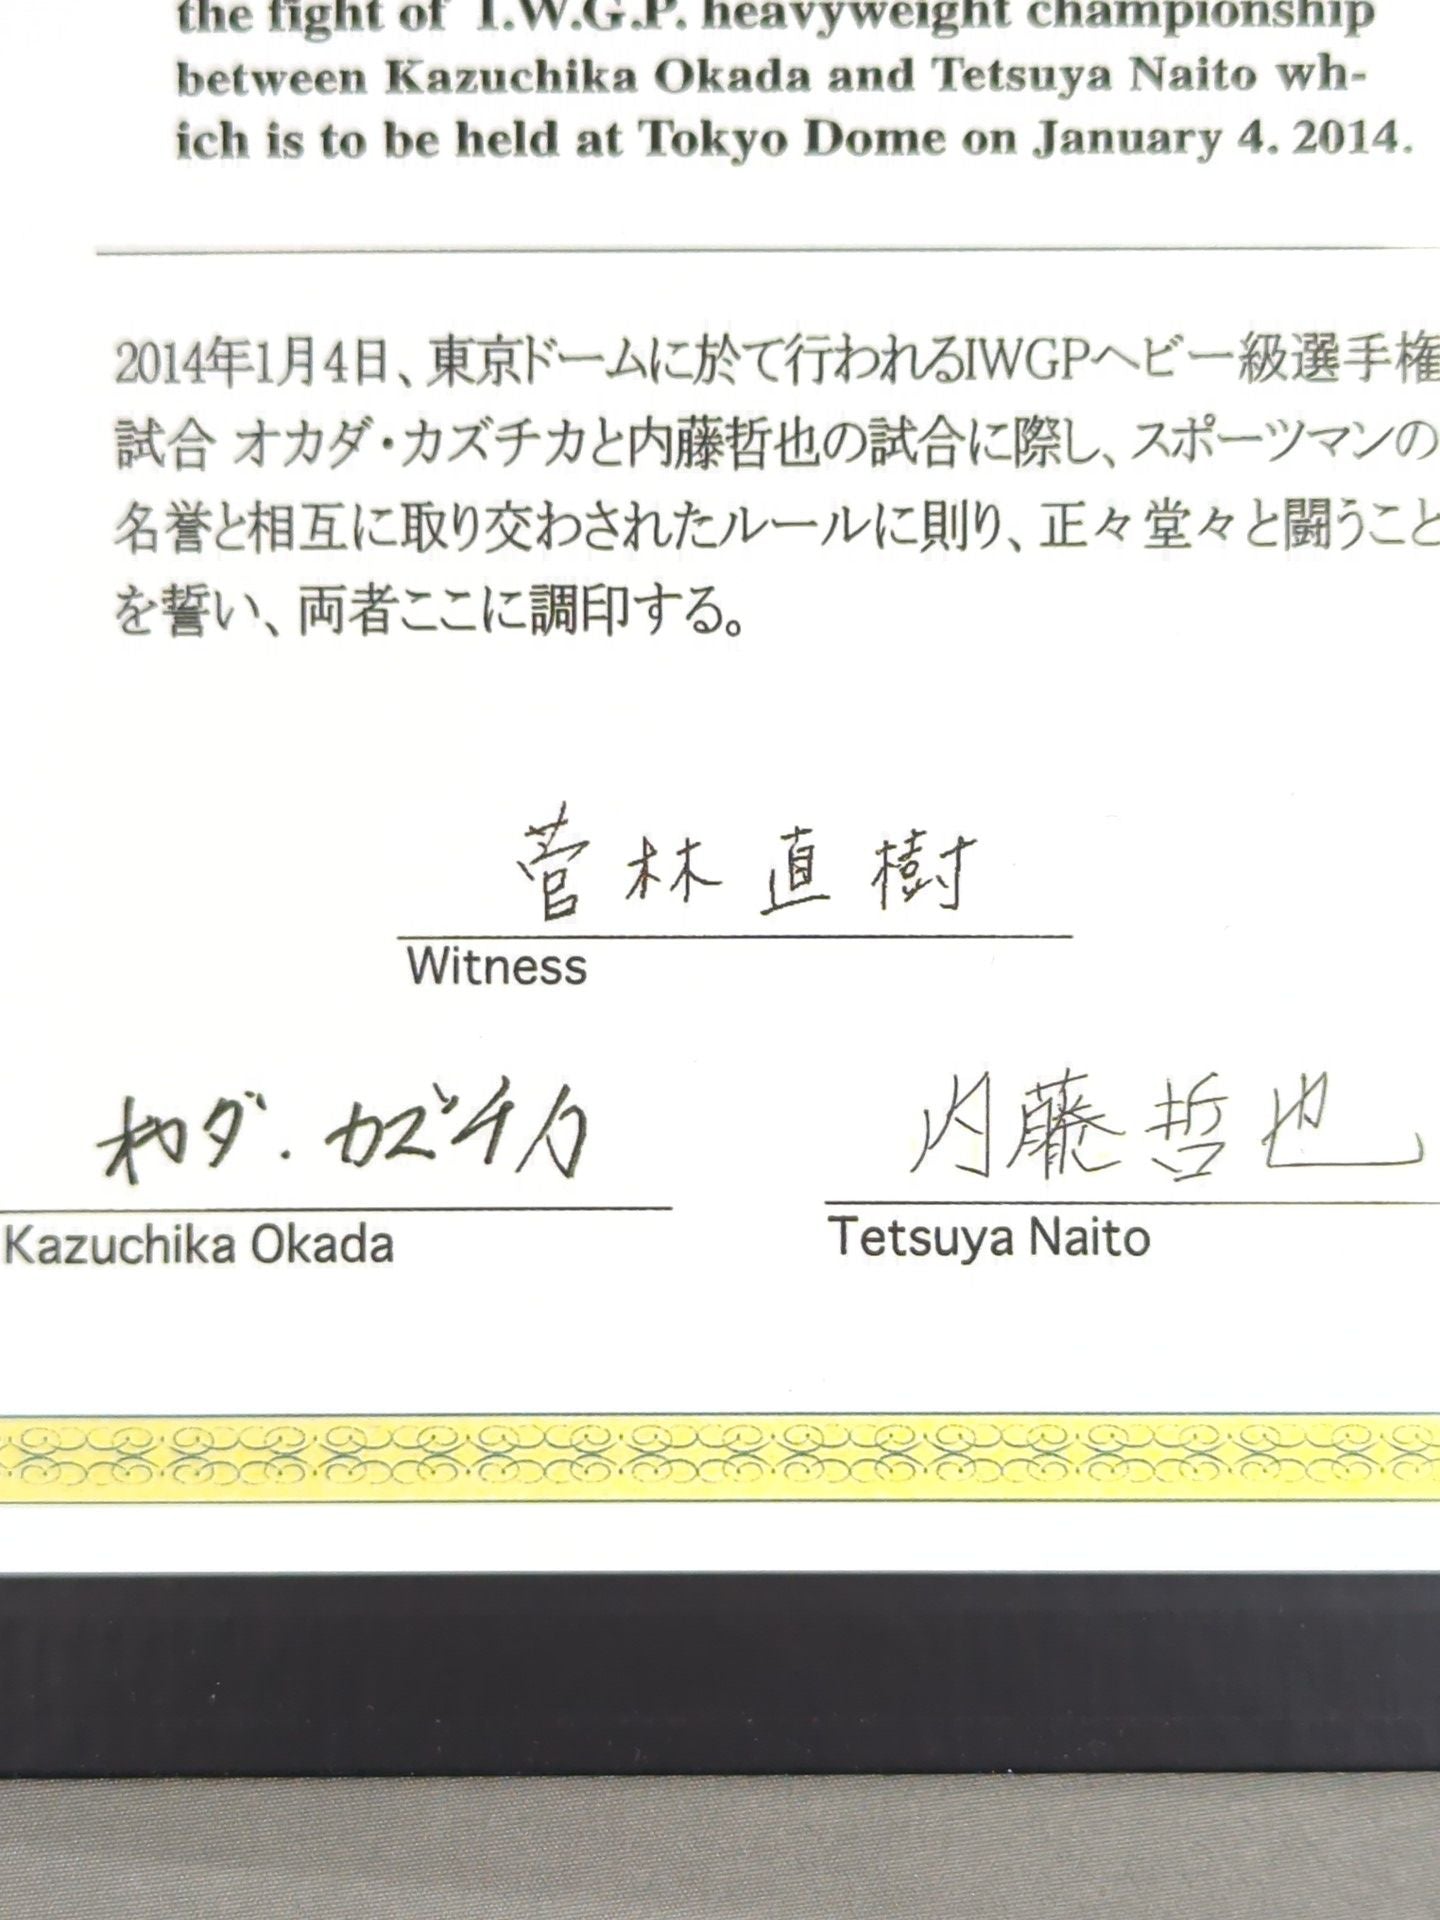 the fight of I.W.G.P. heavyweight championship
between Kazuchika Okada and Tetsuya Naito wh-
ich is to be held at Tokyo Dome on January 4. 2014.
2014年1月4日、東京ドームに於て行われるIWGPヘビー級選手権
試合 オカダ・カズチカと内藤哲也の試合に際し、スポーツマンの
名誉と相互に取り交わされたルールに則り、正々堂々と闘うこと
を誓い、両者ここに調印する。
菅林直樹
Witness
オカダ・カズチカ 内藤哲也
Kazuchika Okada Tetsuya Naito